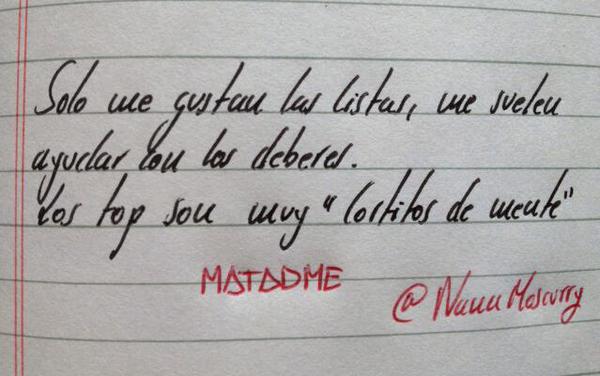 Solo me gustan las listas, me suelen
ayudar con los deberes.
Los top son muy "Cortitos de mente"
MATADME
@NanuMoscurry